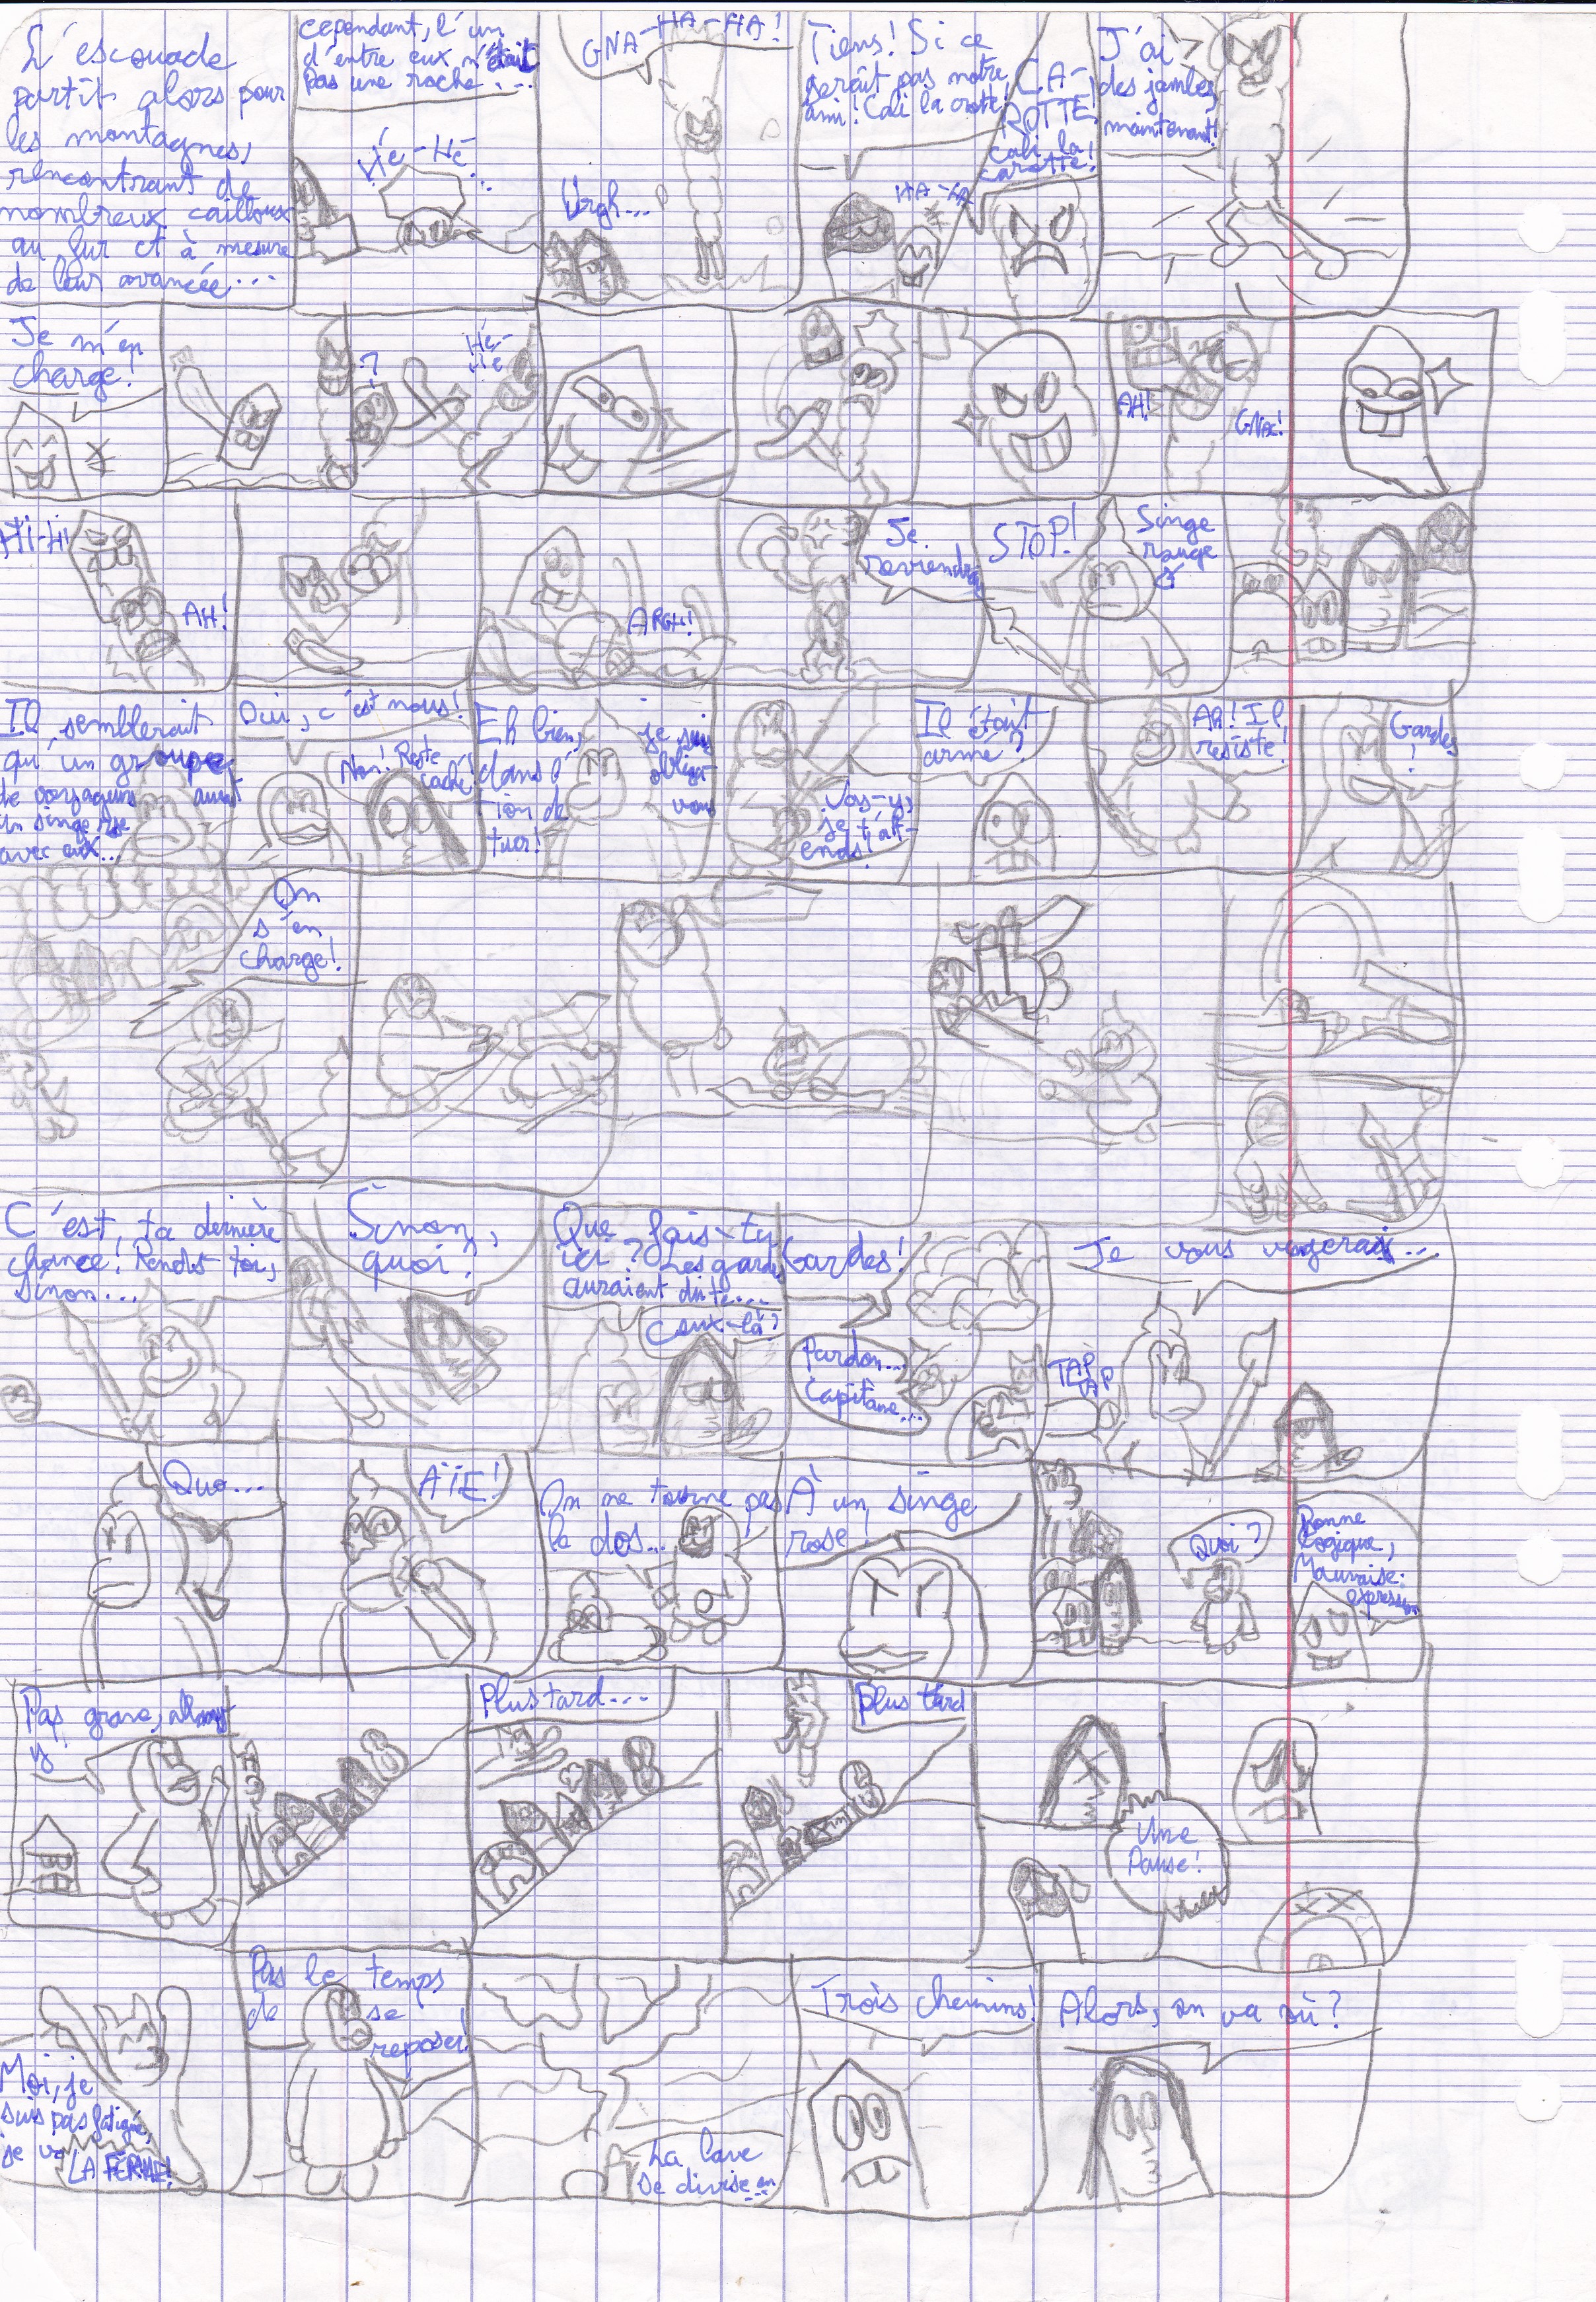 L'escouade
partit alors pour
les montagnes,
rencontrant de
nombreux cailloux
au fur et à mesure
de leur avancée...
cependant, l'un
d'entre eux n'était
pas une roche...
Hé-Hé...
GNA-HA-HA!
Urgh...
Tiens! Si ce
serait pas notre
ami! Cali la crotte!
HA-HA
CA-
ROTTE!
Cali la
carotte!
J'ai
des jambes,
maintenant!
Je m'en
charge!
?
Hé-
Hé
AH!
GNAC!
Hi-Hi
AH!
ARGH!
Je
reviendrai
STOP!
Singe
rouge
Il semblerait
qu'un groupe
de voyageurs aurait
un singe rose
avec eux...
Oui, c'est nous!
Non! Reste
caché!
Eh bien, je suis
dans l'obliga-
tion de vous
tuer!
Vas-y,
je t'att-
ends!
Il était
armé?
Ah! Il
résiste!
Gardes
!
On
s'en
charge!
C'est ta dernière
chance! Rends-toi,
sinon...
Sinon,
quoi?
Que fais-tu
ici? Les gardes
auraient dû te...
Ceux-là?
Gardes!
Pardon...
Capitaine...
Je vous vengerai...
TAP
TAP
Quo...
AÏE!
On ne tourne pas
le dos...
À un singe
rose!
Quoi?
Bonne
logique,
Mauvaise
expression
Pas grave, allons-
y!
Plus tard...
Plus tard
Une
Pause!
Moi, je
suis pas fatigué,
je v
LA FERME!
Pas le temps
de se
reposer!
La lave
se divise en
...
Trois chemins!
Alors, on va où?